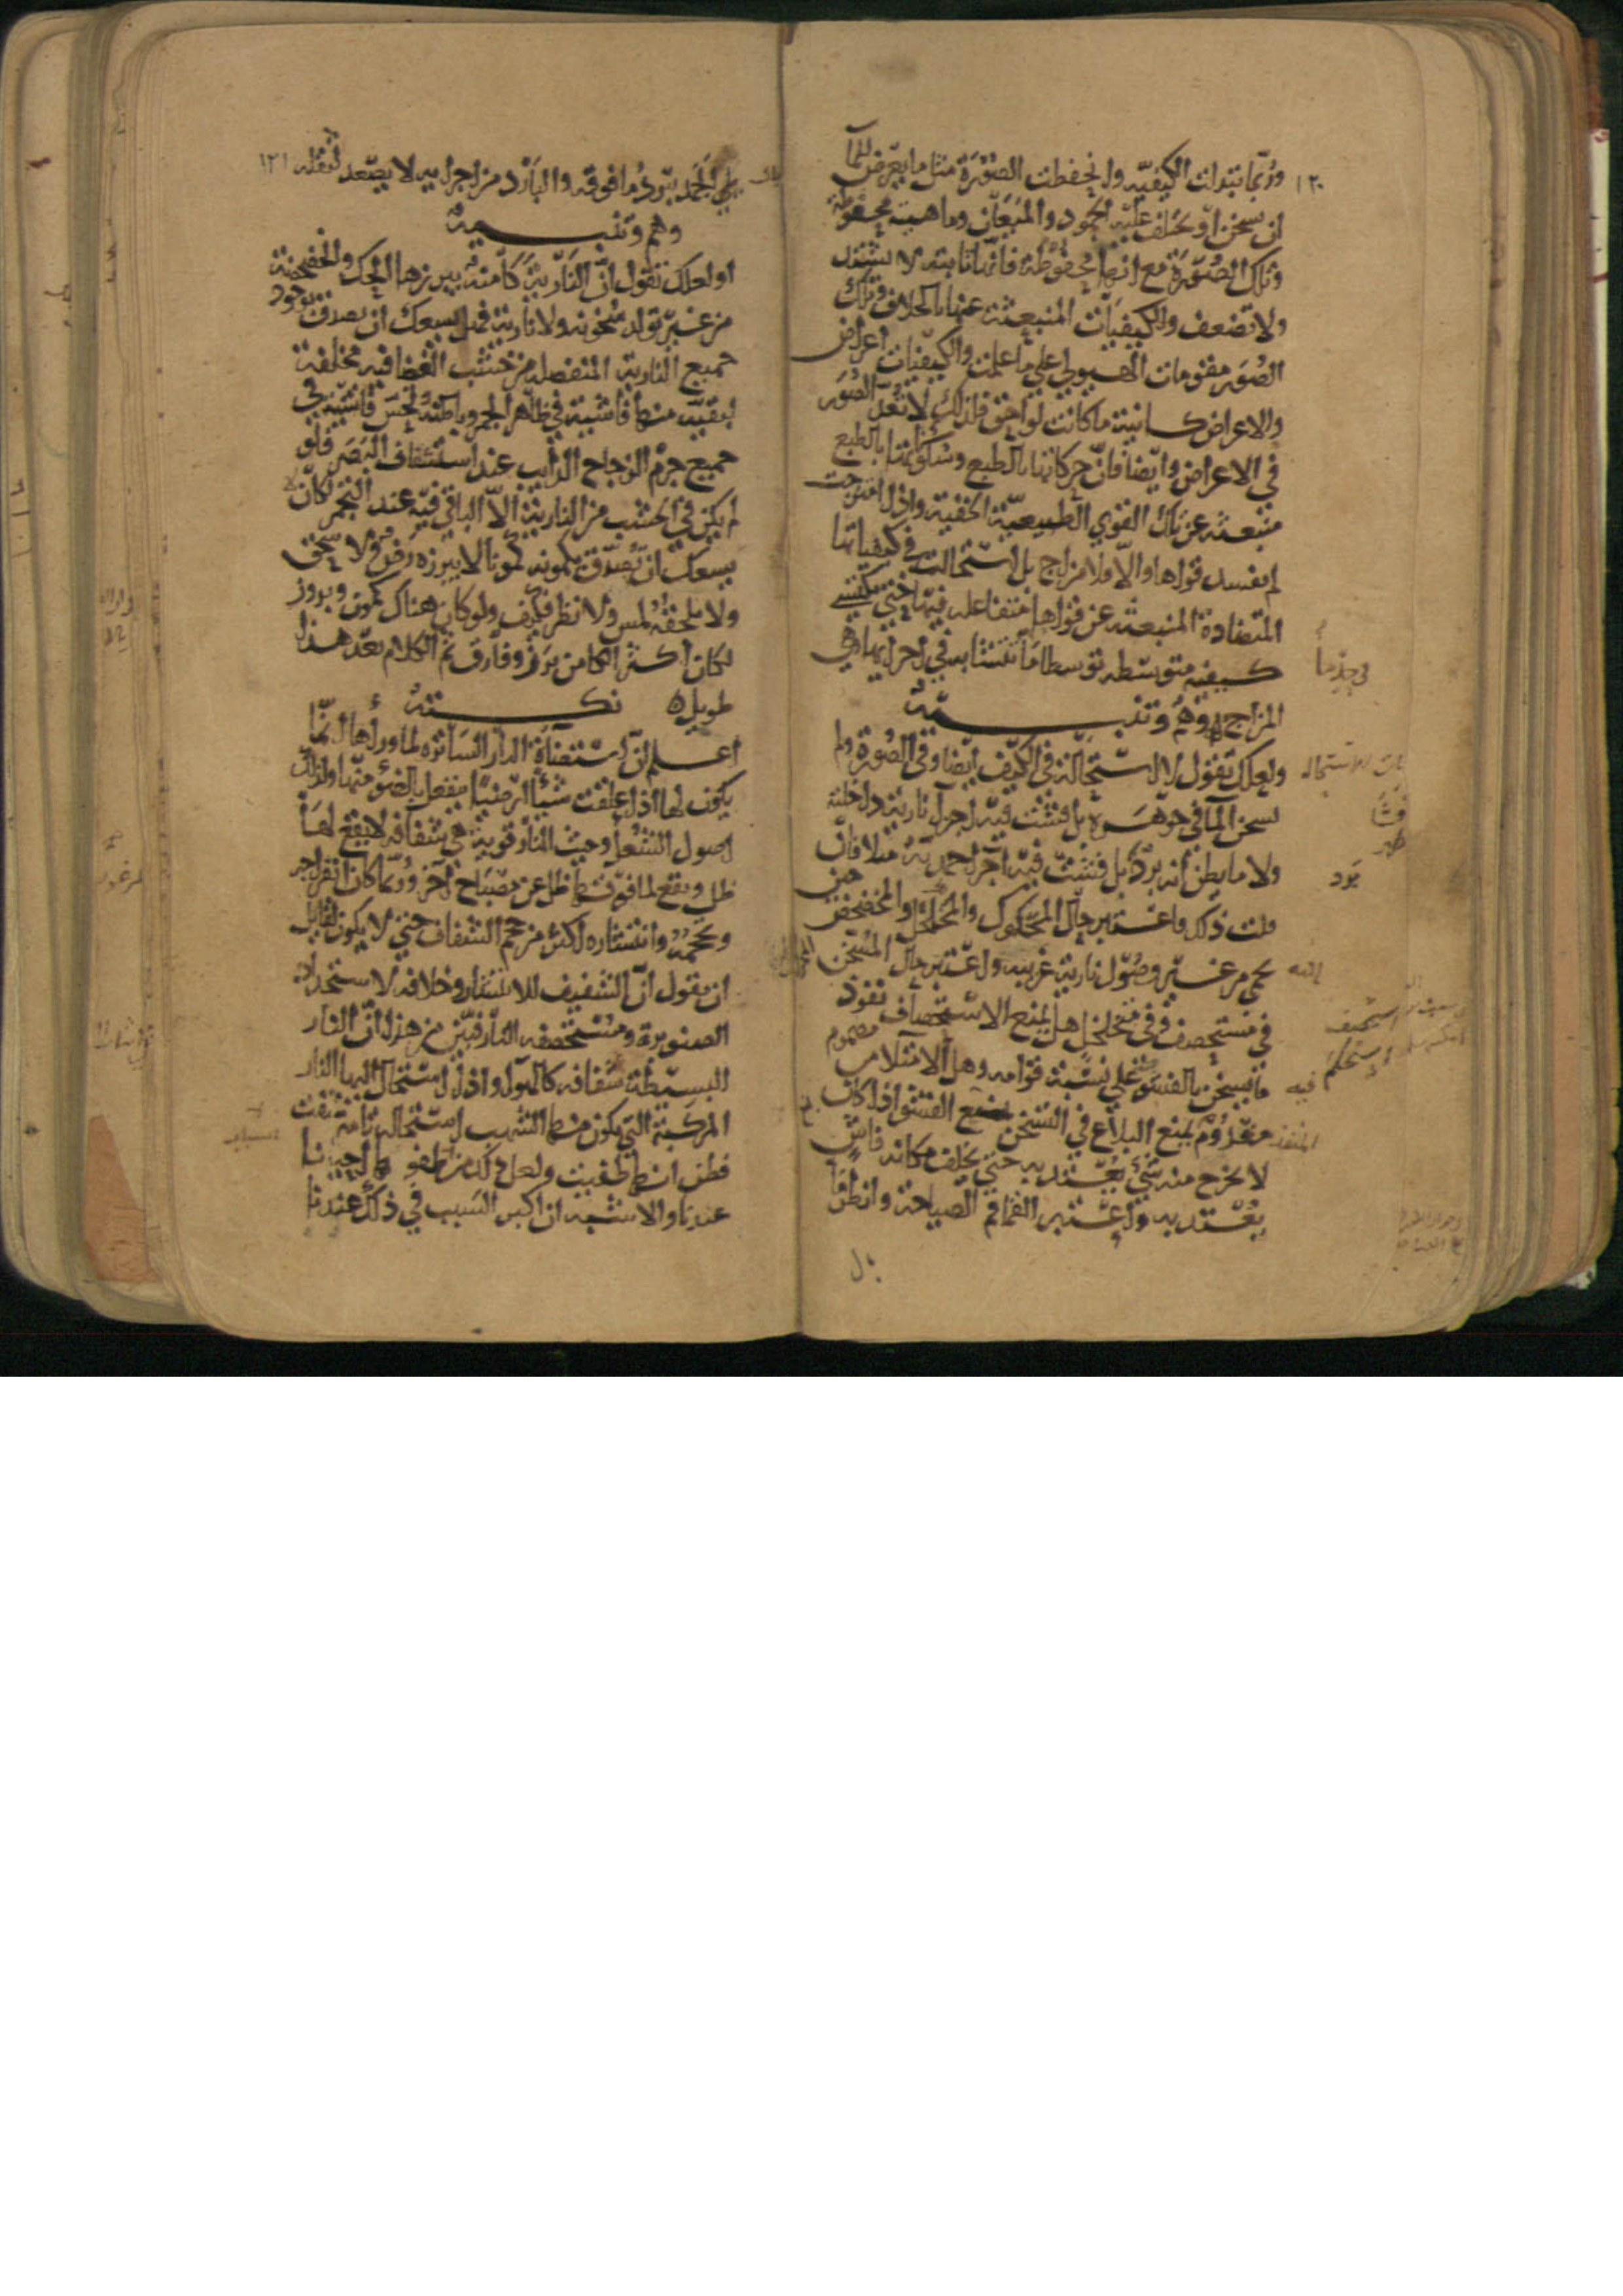 ١٢٠
وربما تبدلت الكيفية وانحفظت الصورة مثل ما يعرض للماء
ان يسخن او يختلف عليه الجمود والميعان وماهيته محفوظة
وتلك الصورة مع انها محفوظة فانها ثابتة لا تشتد
ولا تضعف والكيفيات المنبعثة عنها بالخلاف وتلك
الصور مقومات الهيولي علي ما علمت والكيفيات اعراض
والاعراض كاينة ما كانت لواحق فلذلك لا تعد الصور
في الاعراض وايضا فان حركاتها بالطبع وسكوناتها بالطبع
منبعثة عن تلك القوي الطبيعية الخفية واذا امتزجت
لم تفسد قواها والا فلا مزاج بل استحالت في كيفياتها
المتضادة المنبعثة عن قواها متفاعلة فيها حتي تكتسي
كيفية متوسطة توسطا ما تتشابه في اجزائها وهي
المزاج وهم وتنبيه
ولعلك تقول لا استحالة في الكيف ايضا وفي الصورة ولم
يسخن الما في جوهره بل فشت فيه اجزا نارية داخلته
ولا ما يظن انه برد بل فشت فيه اجزا جمدية مثلا فان
قلت ذلك فاعتبر حال المحكوك والمخلخل والمخضخض حين
يحمي من غير وصول نارية غريبة واعتبر حال المسخن
في مستحصف وفي متخلخل هل يمنع الاستحصاف نفوذ
ما يسخن بالفشو علي نسبة قوامه وهل الامتلا من مصموم
مفدوم يمنع البلاغ في التسخن لمنع الفشو اذا كان
لا يخرج منه شي يعتد به حتي يخلف مكانه فاش
يعتد به واعتبر القماقم الصياحة وانظر ما
بل
١٢١
بال الجمد يبرد ما فوقه والبارد من اجزايه لا يصعد لثقله
وهم وتنبيه
او لعلك تقول ان النارية كامنة يبرزها الحك والخضخضة
من غير تولد سخونة ولا نارية فهل يسعك ان تصدق بوجود
جميع النارية المنفصلة من خشب الغضا فيه مخلفة
لبقية منها فاشية في ظاهر الجمر وباطنه وتحس فاشية في
جميع جرم الزجاج الذايب عند استشفاف البصر فلو
لم يكن في الخشب من النارية الا الباقي فيه عند التجمر لكان لا
يسعك ان تصدق بكمونه كمونا لا يبرزه رض ولا سحق
ولا يلحقه لمس ولا نظر فكيف ولو كان هناك كمون وبروز
لكان اكثر الكامن برز وفارق ثم الكلام بعد هذا
طويل نكتة
اعلم ان استضاة النار الساترة لما وراها انما
يكون لها اذا علقت شيا ارضيا ينفعل بالضو منها ولذلك
اصول الشعل وحيث النار قوية هي شفافة لا يقع لها
ظل ويقع لما فوقها ظل عن مصباح اخر وربما كان انفراجه
وتحجمه وانتشاره اكثر من حجم الشفاف حتي لا يكون لقايل
ان يقول ان الشفيف للانتشار وخلافه لاستحداد
الصنوبرة ومستحصفه النار فبين من هذا ان النار
البسيطة شفافة كالهوا واذا استحال اليها النار
المركبة التي يكون منها الشهب استحالة تامة شفت
فظن انها طفيت ولعل ذلك من طفو احيانا
عندنا والاشبه ان اكبر السبب في ذلك عندنا